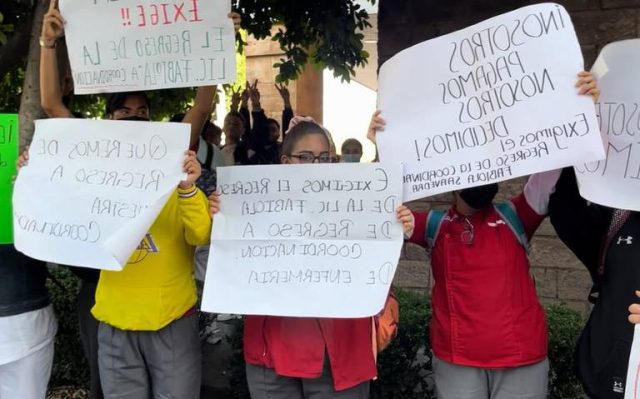 EXIGE!!
EL REGRESO DE LA
LIC. FABIOLA A COORDINACION
QUEREMOS DE
REGRESO A
NUESTRA
EXIGIMOS EL REGRESO
DE LA LIC. FABIOLA
DE REGRESO
COORDINACION
DE ENFERMERIA
¡NOSOTROS
PAGAMOS
NOSOTROS
DECIDIMOS!
EXIGIMOS EL
REGRESO DE LA
FABIOLA SAAVEDRA